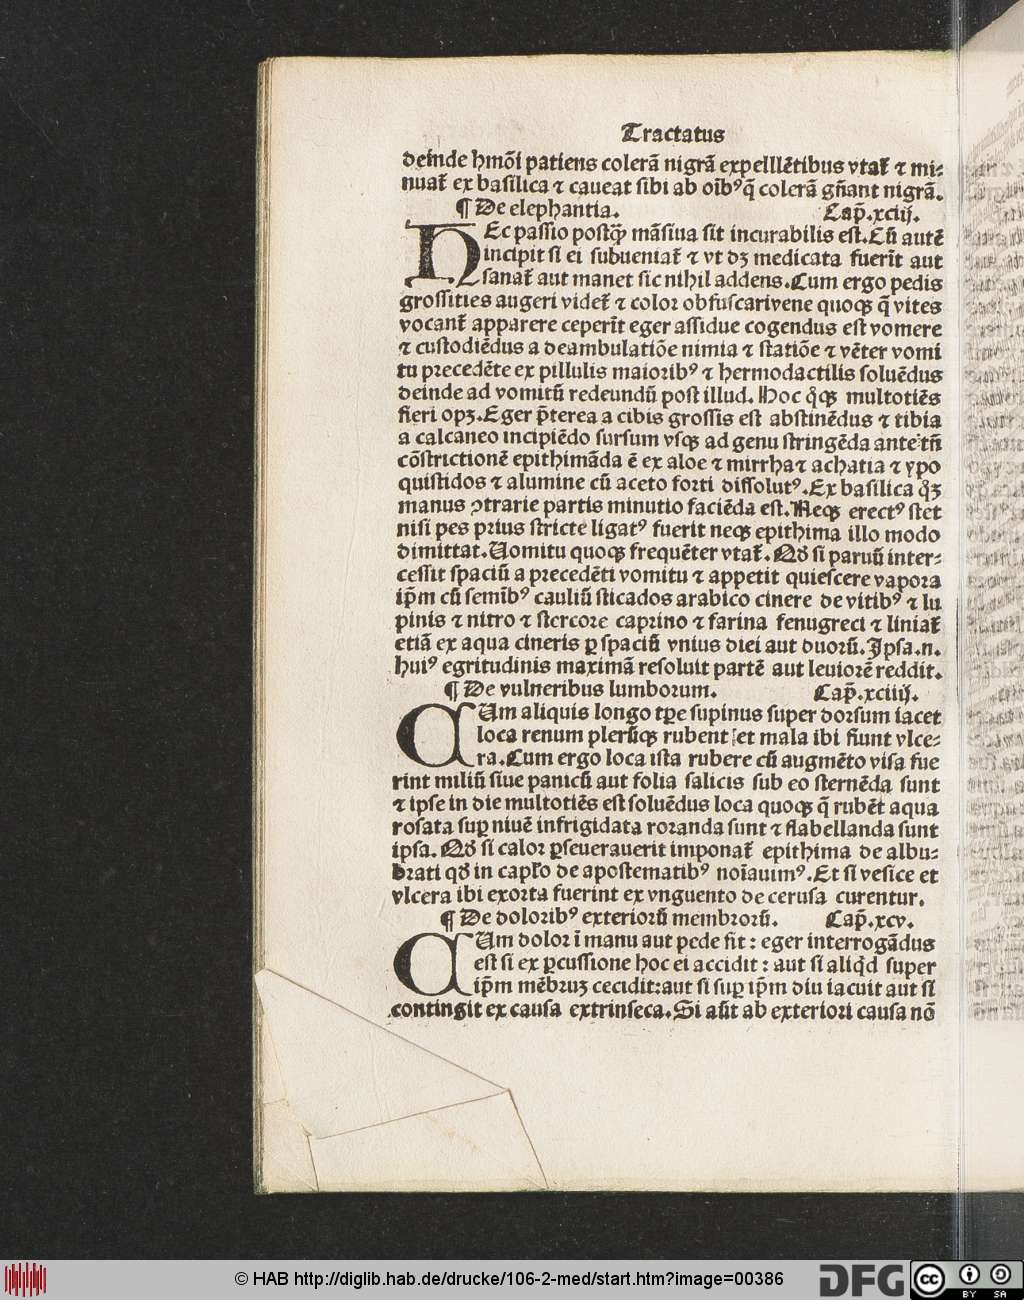 Tractatus
deinde hmõi patiens colerã nigrã expelllẽtibus vtat᷑ ⁊ mi-
nuat᷑ ex basilica ⁊ caueat sibi ab oib⁹ q̃ colerã gñant nigrã.
¶ De elephantia. Cap̃. xciij.
HEc passio postq̃ʒ mãsiua sit incurabilis est. Cũ autẽ
incipit si ei subueniat᷑ ⁊ vt dʒ medicata fuerit aut
sanat᷑ aut manet sic nihil addens. Cum ergo pedis
grossities augeri videt᷑ ⁊ color obfuscari vene quoqʒ q̃ vites
vocant᷑ apparere ceperĩt eger assidue cogendus est vomere
⁊ custodiẽdus a deambulatiõe nimia ⁊ statiõe ⁊ vẽter vomi
tu precedẽte ex pillulis maiorib⁹ ⁊ hermodactilis soluẽdus
deinde ad vomitũ redeundũ post illud. Hoc q̊qʒ multotiẽs
fieri opʒ. Eger p̃terea a cibis grossis est abstinẽdus ⁊ tibia
a calcaneo incipiẽdo sursum vsqʒ ad genu stringẽda ante tñ
cõstrictionẽ epithimãda ẽ ex aloe ⁊ mirrha ⁊ achatia ⁊ ypo
quistidos ⁊ alumine cũ aceto forti dissolut⁹. Ex basilica q̊ʒ
manus ꝯtrarie partis minutio faciẽda est. Neqʒ erect⁹ stet
nisi pes prius stricte ligat⁹ fuerit neqʒ epithima illo modo
dimittat. Uomitu quoqʒ frequẽter vtat᷑. Qđ si paruũ inter-
cessit spaciũ a precedẽti vomitu ⁊ appetit quiescere vapora
ip̃m cũ semĩb⁹ cauliũ sticados arabico cinere de vitib⁹ ⁊ lu
pinis ⁊ nitro ⁊ stercore caprino ⁊ farina fenugreci ⁊ liniat᷑
etiã ex aqua cineris ꝑ spaciũ vnius diei aut duorũ. Ipsa .n.
hui⁹ egritudinis maximã resoluit partẽ aut leuiorẽ reddit.
¶ De vulneribus lumborum. Cap̃. xciiij.
CUm aliquis longo tp̃e supinus super dorsum iacet
loca renum plerũqʒ rubent et mala ibi fiunt vlce-
ra. Cum ergo loca ista rubere cũ augmẽto visa fue
rint miliũ siue panicũ aut folia salicis sub eo sternẽda sunt
⁊ ipse in die multotiẽs est soluẽdus loca quoqʒ q̃ rubẽt aqua
rosata suꝑ niuẽ infrigidata roranda sunt ⁊ flabellanda sunt
ipsa. Qđ si calor ꝑseuerauerit imponat᷑ epithima de albu-
brati qđ in cap̃lo de apostematib⁹ noĩauim⁹. Et si vesice et
vlcera ibi exorta fuerint ex vnguento de cerusa curentur.
¶ De dolorib⁹ exteriorũ membrorũ. Cap̃. xcv.
CUm dolor ĩ manu aut pede fit : eger interrogãdus
est si ex ꝑcussione hoc ei accidit : aut si aliq̊d super
ip̃m mẽbruʒ cecidit: aut si suꝑ ip̃m diu iacuit aut si
contingit ex causa extrinseca. Si aũt ab exteriori causa nõ
© HAB http://diglib.hab.de/drucke/106-2-med/start.htm?image=00386
DFG
cc
BY SA